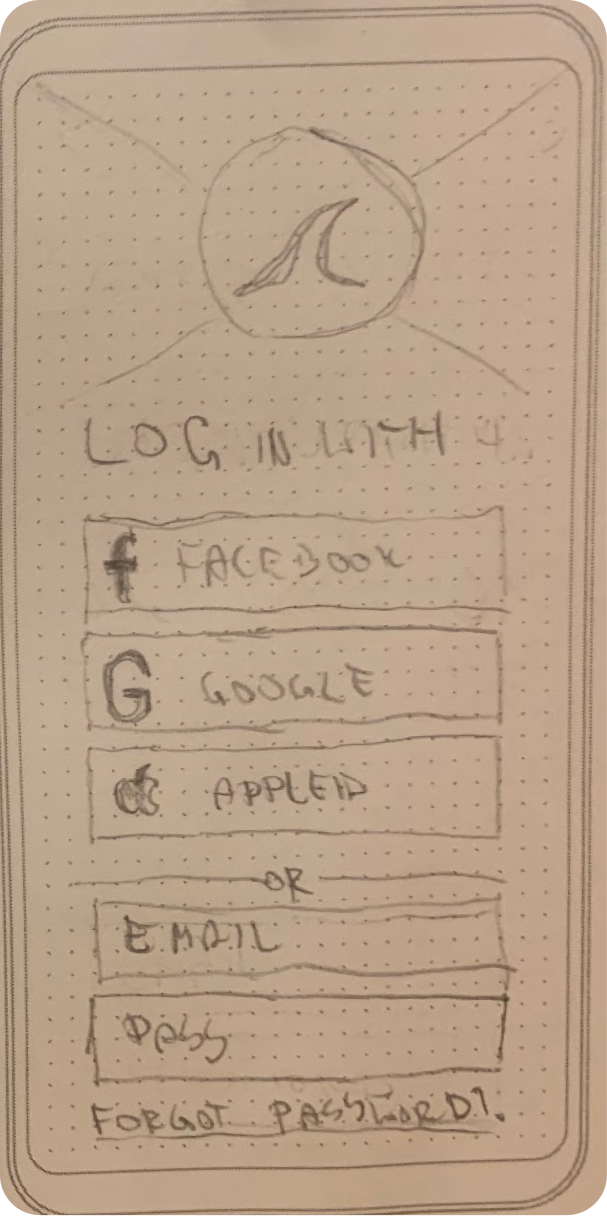 LOG IN WITH
f FACEBOOK
G GOOGLE
APPLEID
OR
EMAIL
PASS
FORGOT PASSWORD?